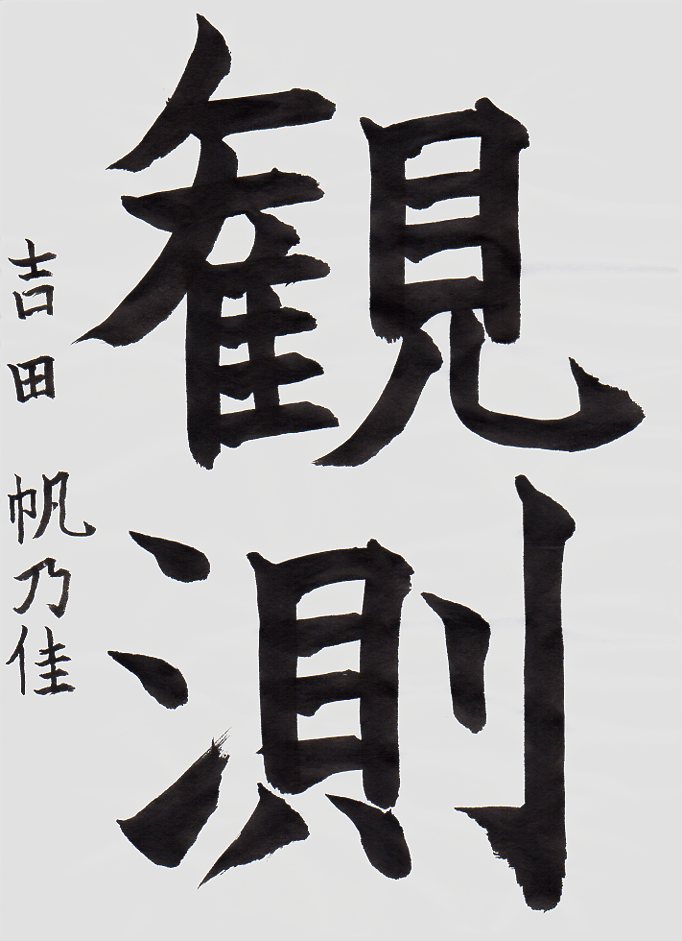 観測
吉田 帆乃佳